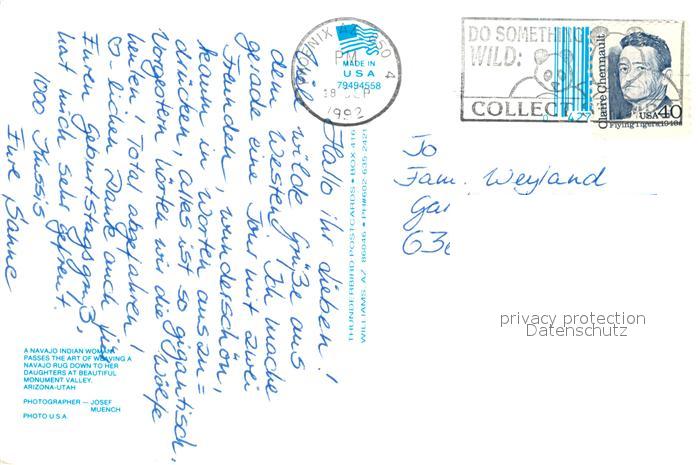 Hallo ihr Lieben!
Viele wilde Grüße aus
dem Westen! Ich mache
gerade eine Tour mit zwei
Freunden, wunderschön,
kaum in Worten auszu=
drücken, alles ist so gigantisch.
Vorgestern hörten wir die Wölfe
heulen! Total abgefahren!
♡-lichen Dank auch für
Euren Geburtstagsgruß,
hat mich sehr gefreut.
1000 Kussis
Eure Sanne
PHOENIX AZ 850 4
PM
18 SEP
1992
MADE IN
USA
79494558
DO SOMETHING
WILD:
COLLECT
Claire Chennault
USA 40
Flying Tigers, 1940s
To
Fam. Weyland
THUNDERBIRD POSTCARDS • BOX 416
WILLIAMS, AZ 86046 • PH#602-635-2421
privacy protection
Datenschutz
A NAVAJO INDIAN WOMAN
PASSES THE ART OF WEAVING A
NAVAJO RUG DOWN TO HER
DAUGHTERS AT BEAUTIFUL
MONUMENT VALLEY,
ARIZONA-UTAH
PHOTOGRAPHER — JOSEF
MUENCH
PHOTO U.S.A.